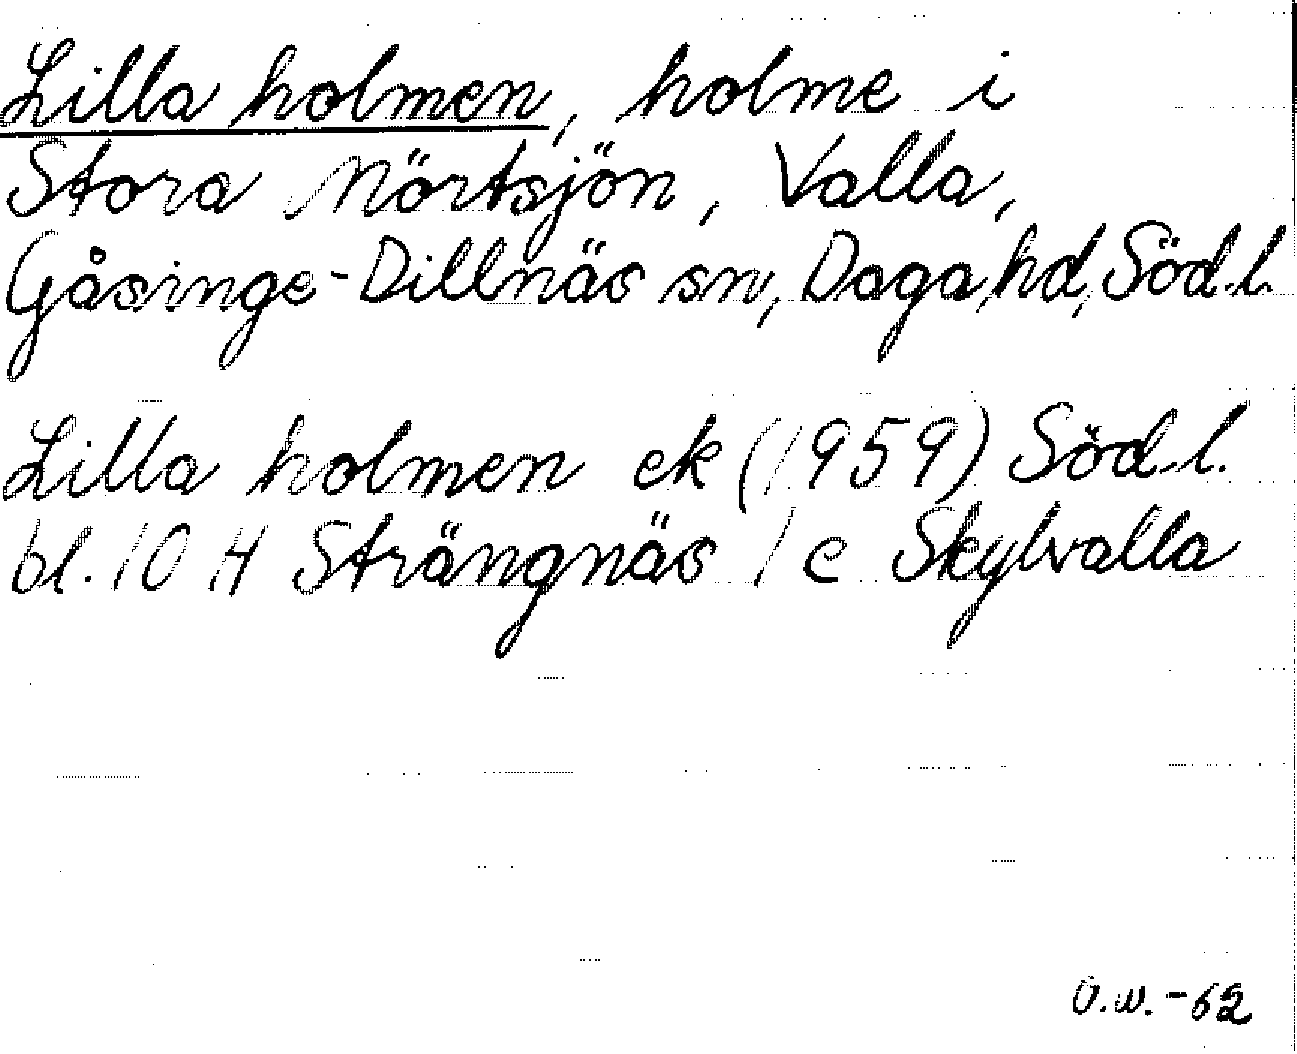 Lilla holmen, holme i
Stora Mörtsjön, Valla,
Gåsinge-Dillnäs sn, Daga hd, Söd.l.
Lilla holmen ek (1959) Söd.l.
bl. 10 H Strängnäs 1 c Skylvalla
O.W.-62